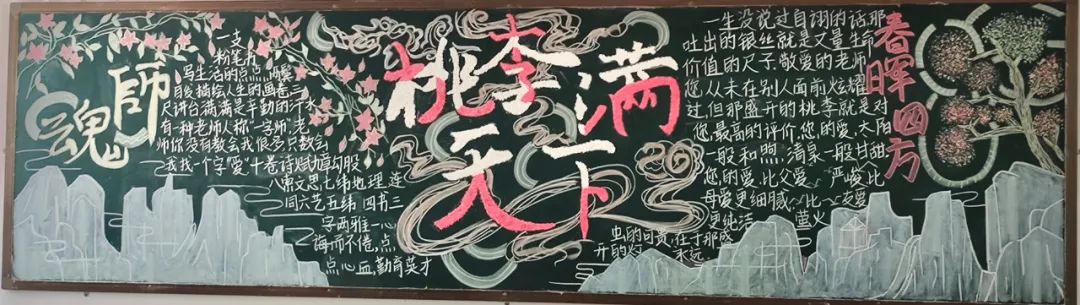 師魂
一支
粉笔书
写生活的点点，两鬓
描绘人生的画卷，三
尺讲台满满是辛勤的汗水
有一种老师人称一字师，老
师你没有教会我很多只教会
我一个字"爱"十卷诗赋九章勾股
八索文思七纬地理，连
同六艺五纬 四书三
字两雅一心
诲而不倦，点
点心血，勤育英才
桃李满
天下
一生没说过自诩的话，那
吐出的银丝就是丈量生命
价值的尺子，敬爱的老师
您从未在别人面前炫耀
过，但那盛开的桃李就是对
您最高的评价，您的爱，太阳
一般和煦，清泉一般甘甜
您的爱，比父爱~严峻，比
母爱更细腻~比~友爱
更纯洁 萤火
虫的可贵，在于那
开的灯 永远
春晖四方